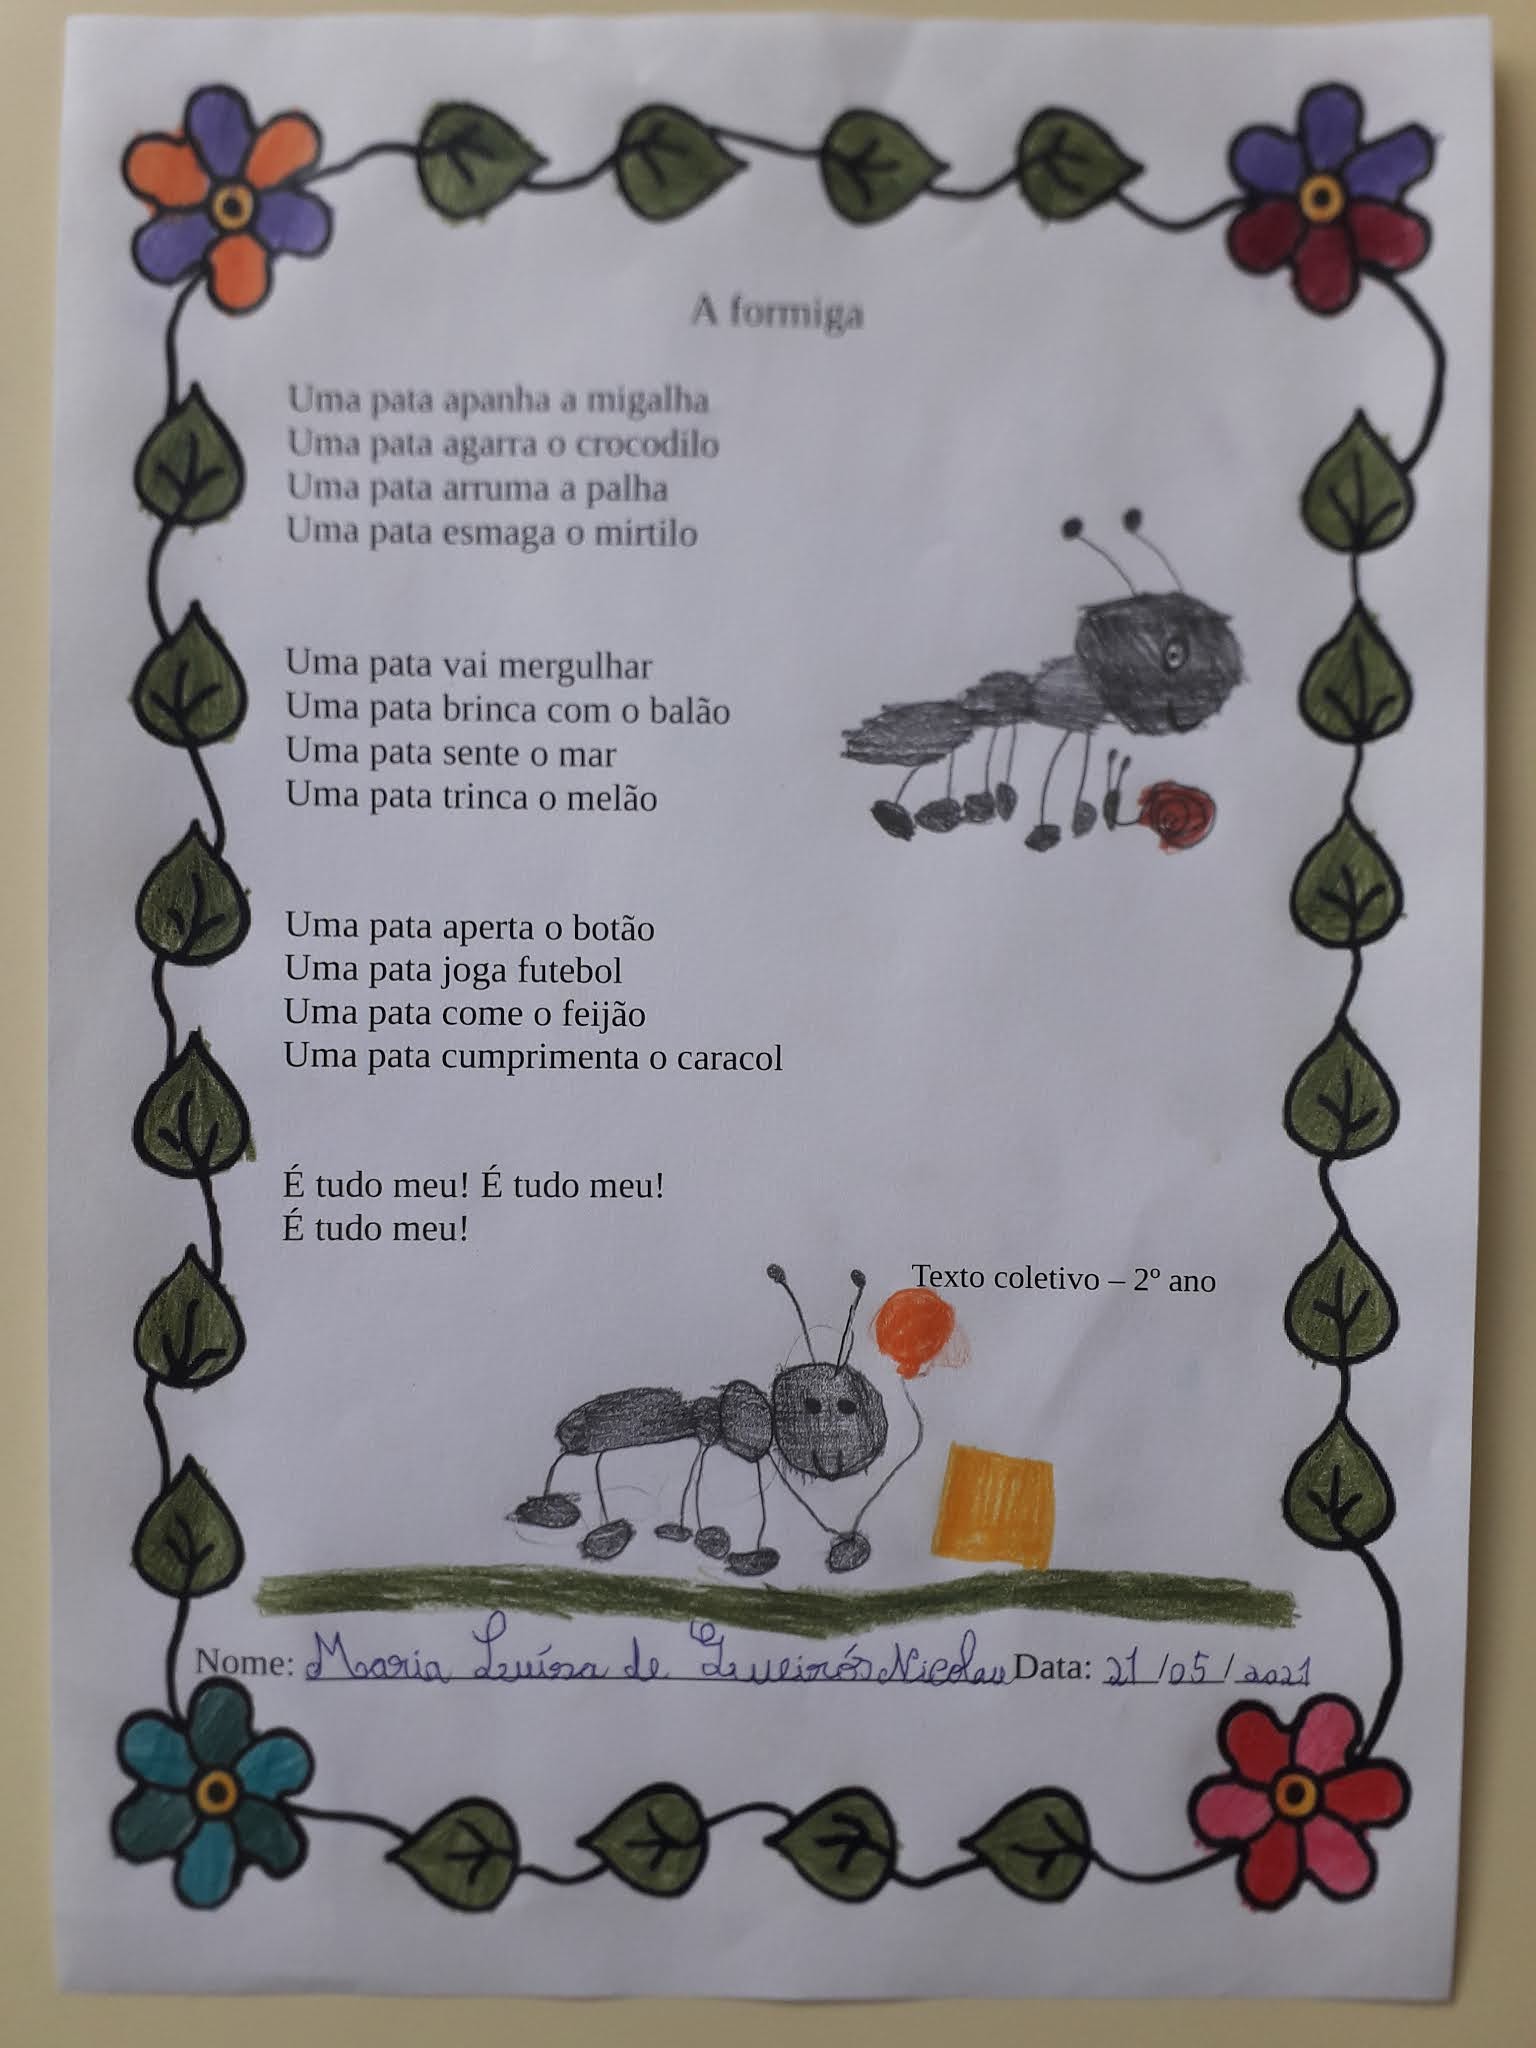 A formiga
Uma pata apanha a migalha
Uma pata agarra o crocodilo
Uma pata arruma a palha
Uma pata esmaga o mirtilo
Uma pata vai mergulhar
Uma pata brinca com o balão
Uma pata sente o mar
Uma pata trinca o melão
Uma pata aperta o botão
Uma pata joga futebol
Uma pata come o feijão
Uma pata cumprimenta o caracol
É tudo meu! É tudo meu!
É tudo meu!
Texto coletivo – 2º ano
Nome: Maria Luísa de Queirós Nicolau Data: 21/05/2021